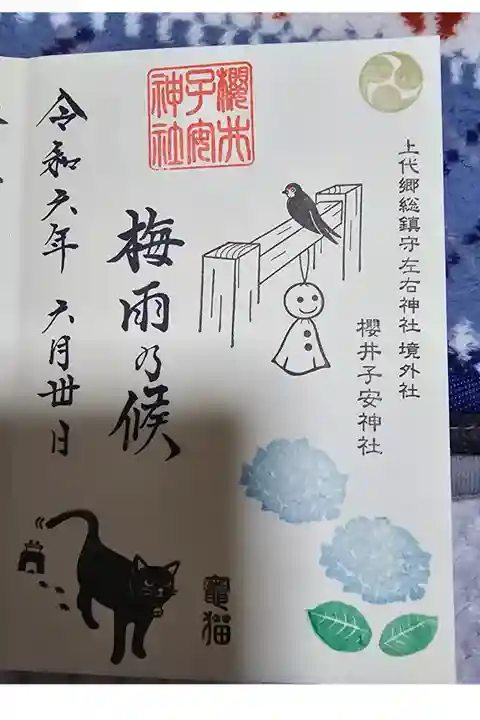 上代郷総鎮守左右神社 境外社
櫻井子安神社
櫻井
子安
神社
梅雨乃候
令和六年 六月丗日
竈猫